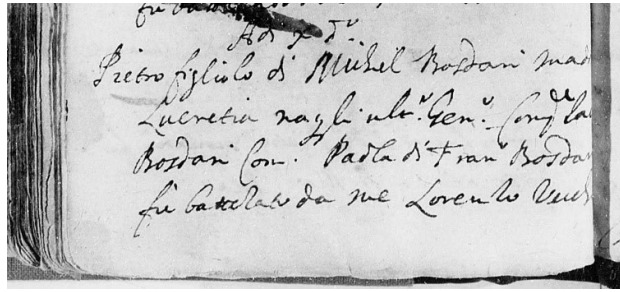 fu bat
Adi x d.º
Pietro figliolo di Michel Bosdari mad
Lucretia nagli ult.º Gen.º Comp.e la
Bosdari Com. Paola di Fran.º Bosda
fu battezato da me Lorenzo Vecch